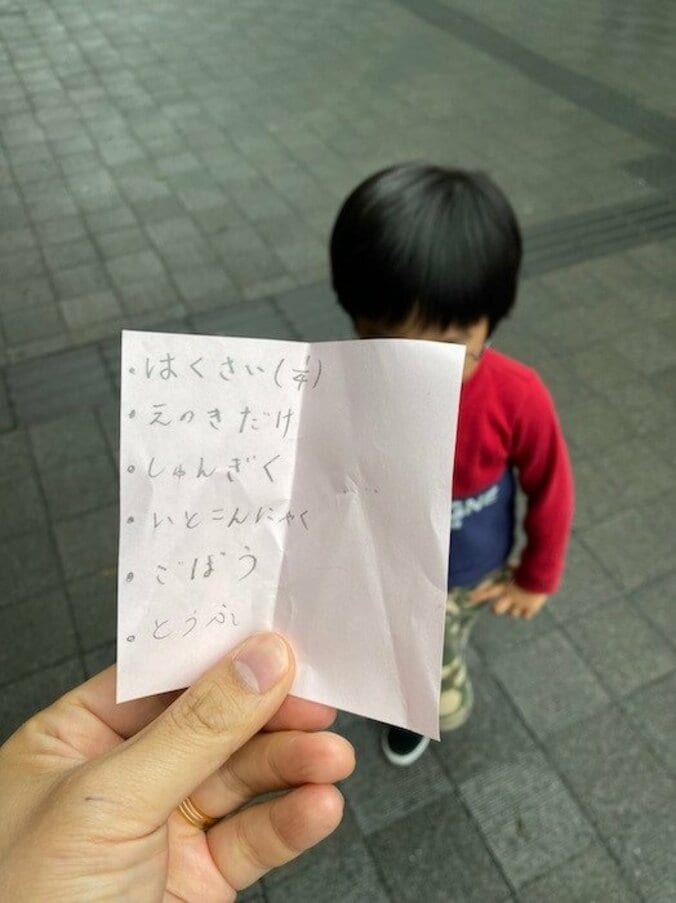 ・はくさい(1/4)
・えのきだけ
・しゅんぎく
・いとこんにゃく
・ごぼう
・とうふ